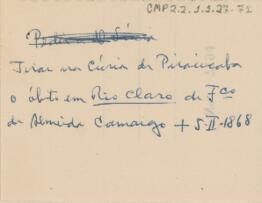 CMP 2.2.3.3.27-71
Tirar na Cúria de Piracicaba
o óbito em Rio Claro de Fco
de Almeida Camargo + 5-II-1868